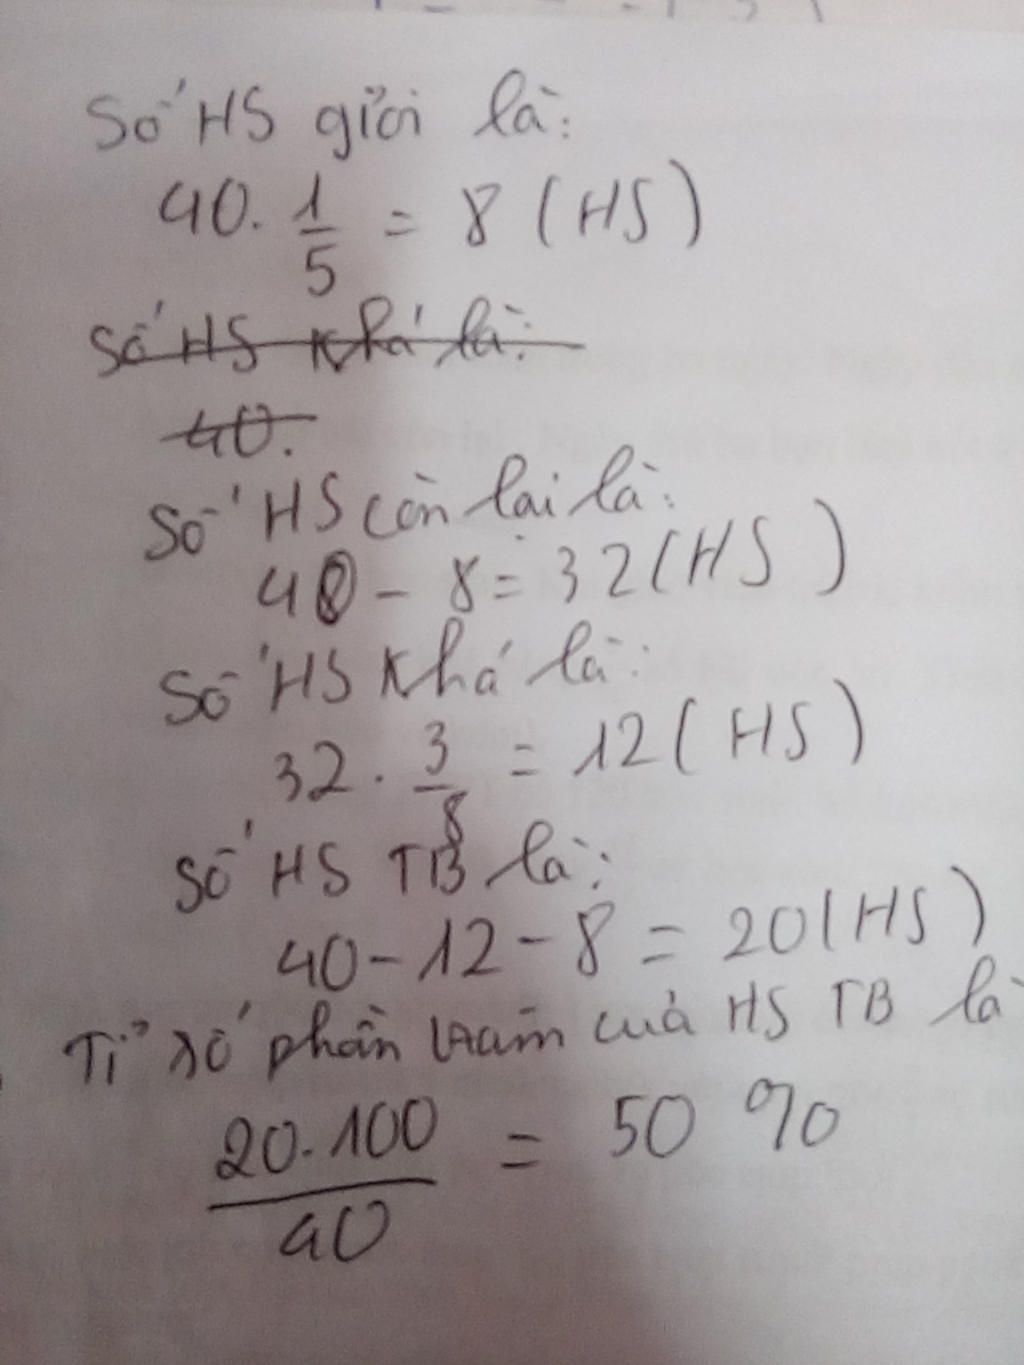 Số HS giỏi là:
40. 1/5 = 8 (HS)
Số HS Khá là:
40.
Số HS còn lại là:
40 - 8 = 32 (HS)
Số HS Khá là:
32 . 3/8 = 12 (HS)
Số HS TB là:
40 - 12 - 8 = 20 (HS)
Tỉ số phần trăm của HS TB là
20.100/40 = 50 %